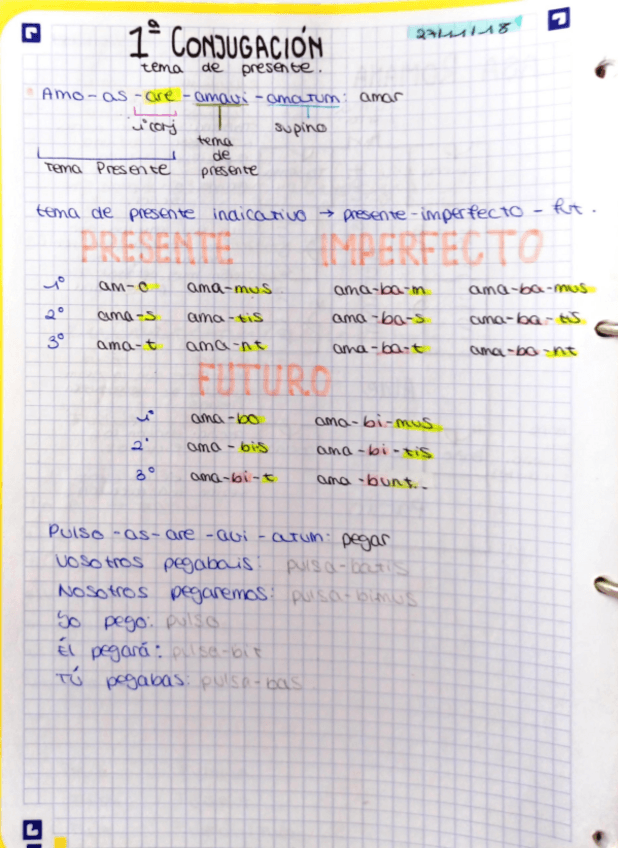 27/11/18
1ª CONJUGACIÓN
tema de presente.
Amo-as-are-amavi-amatum: amar
1ª conj
supino
tema
de
presente
Tema Presente
tema de presente indicativo → presente-imperfecto-fut.
PRESENTE IMPERFECTO
1º am-o ama-mus ama-ba-m ama-ba-mus
2º ama-s ama-tis ama-ba-s ama-ba-tis
3º ama-t ama-nt ama-ba-t ama-ba-nt
FUTURO
1º ama-bo ama-bi-mus
2º ama-bis ama-bi-tis
3º ama-bi-t ama-bunt
Pulso-as-are-avi-atum: pegar
Vosotros pegabais: pulsa-batis
Nosotros pegaremos: pulsa-bimus
Yo pego: pulso
Él pegará: pulsa-bit
Tú pegabas: pulsa-bas